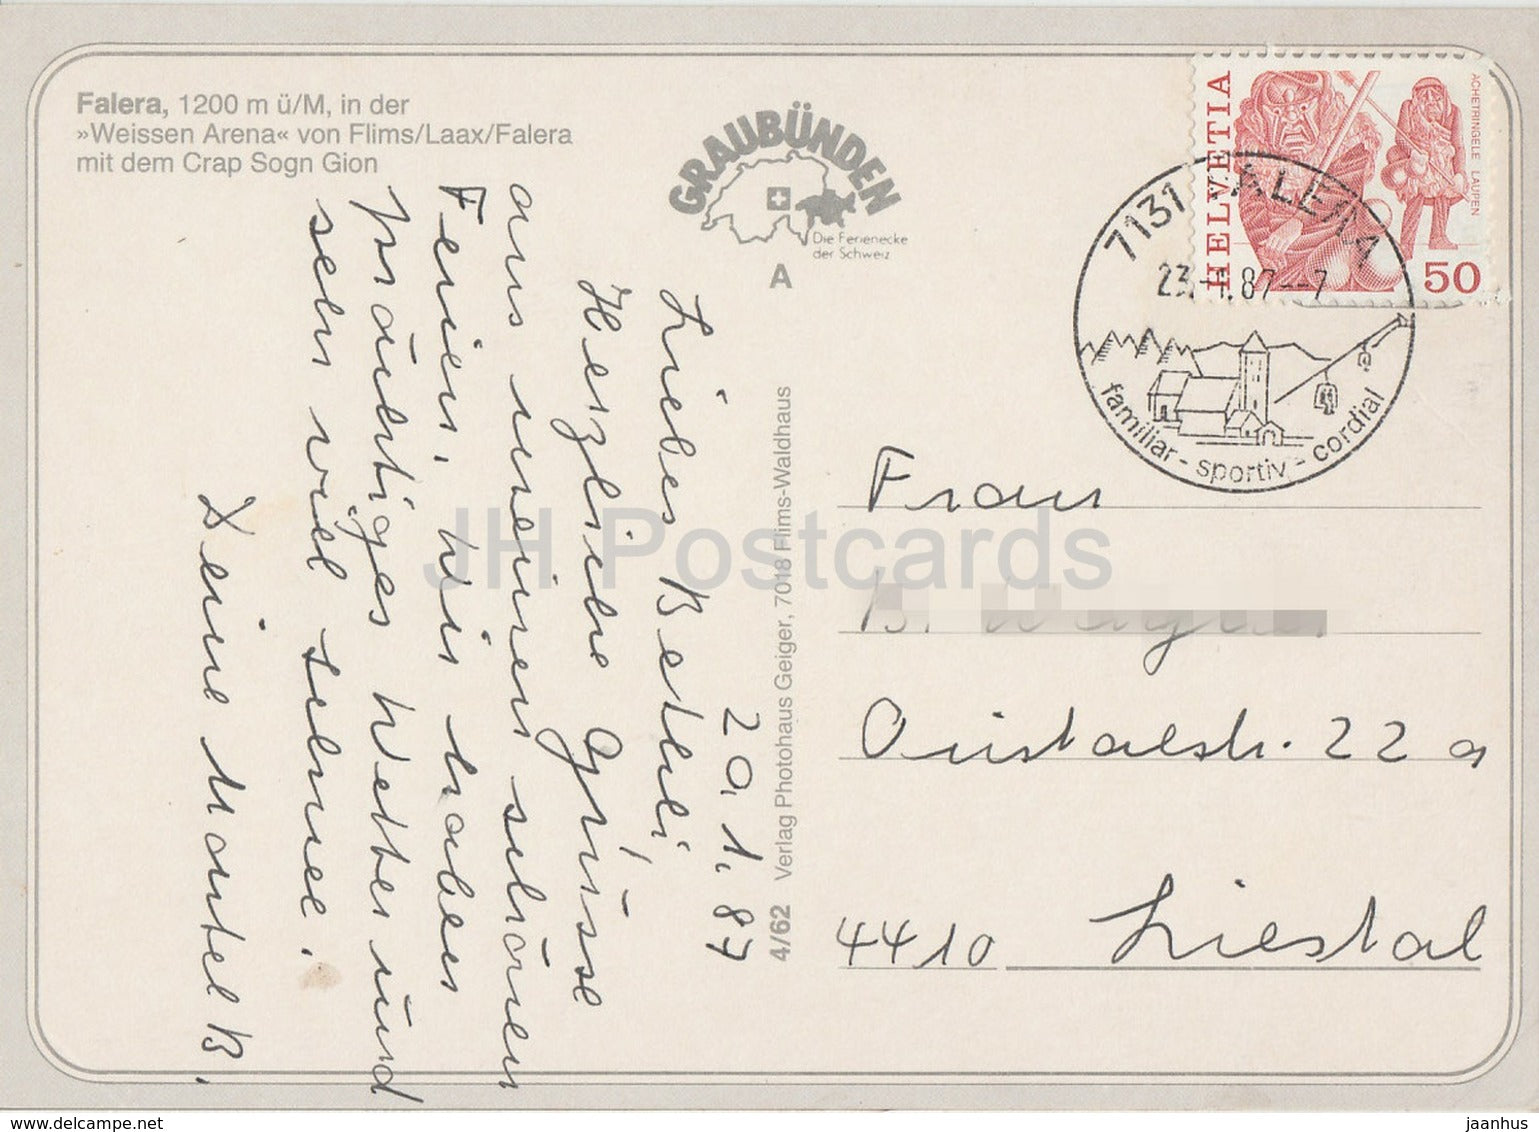 Falera, 1200 m ü/M, in der
»Weissen Arena« von Flims/Laax/Falera
mit dem Crap Sogn Gion
GRAUBÜNDEN
Die Ferienecke
der Schweiz
A
HELVETIA
ACHETRINGELE LAUPEN
50
7131 FALERA
23.-1.87--7
familiar - sportiv - cordial
20.1.87
Liebes Bethli,
Herzliche Grüsse
aus unseren schönen
Ferien. Wir haben
prächtiges Wetter und
sehr viel Schnee.
Deine Martel B.
4/62 Verlag Photohaus Geiger, 7018 Flims-Waldhaus
Frau
22 a
4410 Liestal
JH Postcards
www.delcampe.net
jaanhus